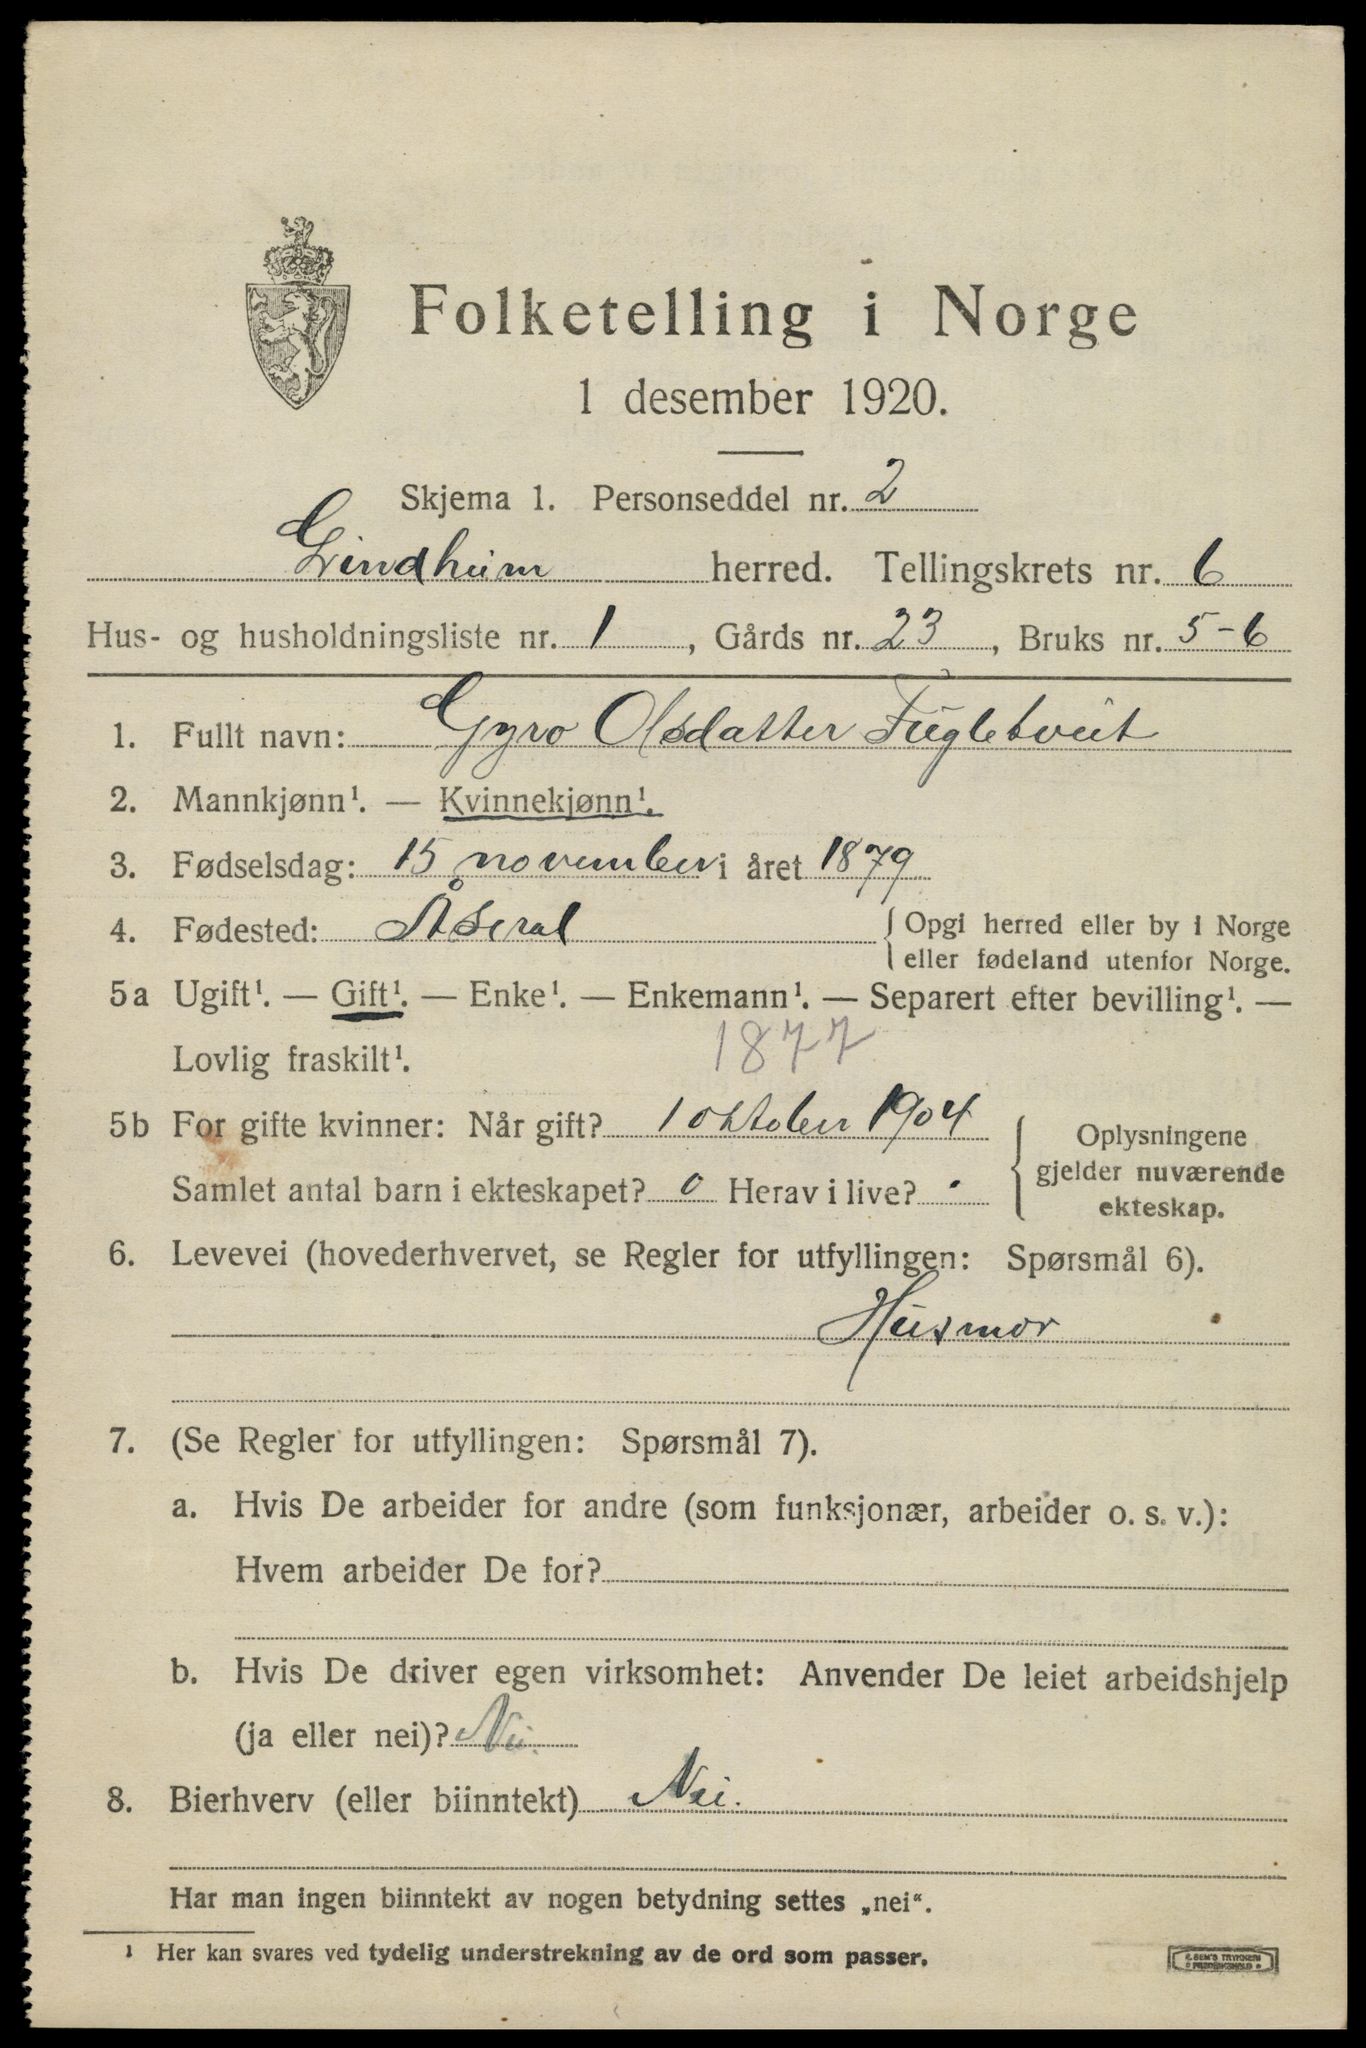 Folketelling i Norge
1 desember 1920.
Skjema 1. Personseddel nr. 2
Grindheim herred. Tellingskrets nr. 6
Hus- og husholdningsliste nr. 1, Gårds nr. 23, Bruks nr. 5-6
1. Fullt navn: Gyro Olsdatter Fugletveit
2. Mannkjønn¹. — Kvinnekjønn¹.
3. Fødselsdag: 15 november i året 1879
4. Fødested: Åseral { Opgi herred eller by i Norge
eller fødeland utenfor Norge.
5a Ugift¹. — Gift¹. — Enke¹. — Enkemann¹. — Separert efter bevilling¹. —
Lovlig fraskilt¹. 1877
5b For gifte kvinner: Når gift? 1 oktober 1904
Samlet antal barn i ekteskapet? 0 Herav i live? ·
{ Oplysningene
gjelder nuværende
ekteskap.
6. Levevei (hovederhvervet, se Regler for utfyllingen: Spørsmål 6).
Husmor
7. (Se Regler for utfyllingen: Spørsmål 7).
a. Hvis De arbeider for andre (som funksjonær, arbeider o. s. v.):
Hvem arbeider De for?
b. Hvis De driver egen virksomhet: Anvender De leiet arbeidshjelp
(ja eller nei)? Nei.
8. Bierhverv (eller biinntekt) Nei.
Har man ingen biinntekt av nogen betydning settes „nei“.
¹ Her kan svares ved tydelig understrekning av de ord som passer.